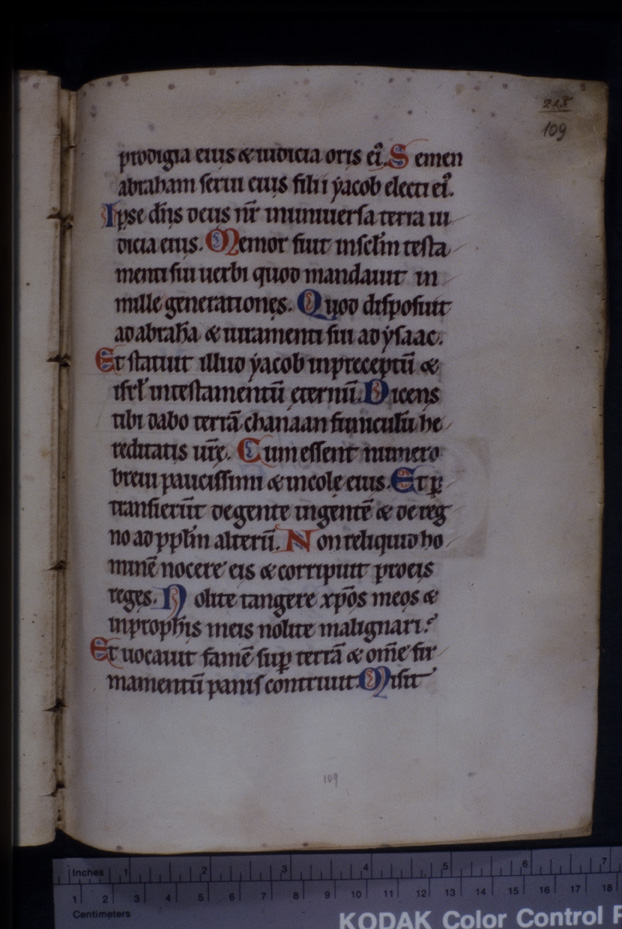 218
109
prodigia eius & iudicia oris ei᷒. Semen
abraham serui eius filii ẏacob electi ei᷒.
Ipse dn̄s deus nr̄ inuniuersa terra iu
dicia eius. Memor fuit insclm̄ testa
menti sui uerbi quod mandauit in
mille generationes. Quod disposuit
ad abrahā & iuramenti sui ad ẏsaac.
Et statuit illud ẏacob inpreceptū &
isrl̄ intestamentū ęternū. Dicens
tibi dabo terrā chanaan funiculū he
reditatis urę̄. Cum essent numero
breui paucissimi & incole eius. Et ꝑ
transierūt degente ingentē & de reg
no ad pplm̄ alterū. Non reliquid ho
minē nocere eis & corripuit proeis
reges. Nolite tangere xp̄os meos &
inprophis̄ meis nolite malignari.
Et uocauit famē suꝑ terrā & om̄e fir
mamentū panis contriuit. Misit
109
Inches 1 2 3 4 5 6 7
1 2 3 4 5 6 7 8 9 10 11 12 13 14 15 16 17 18
Centimeters
KODAK Color Control